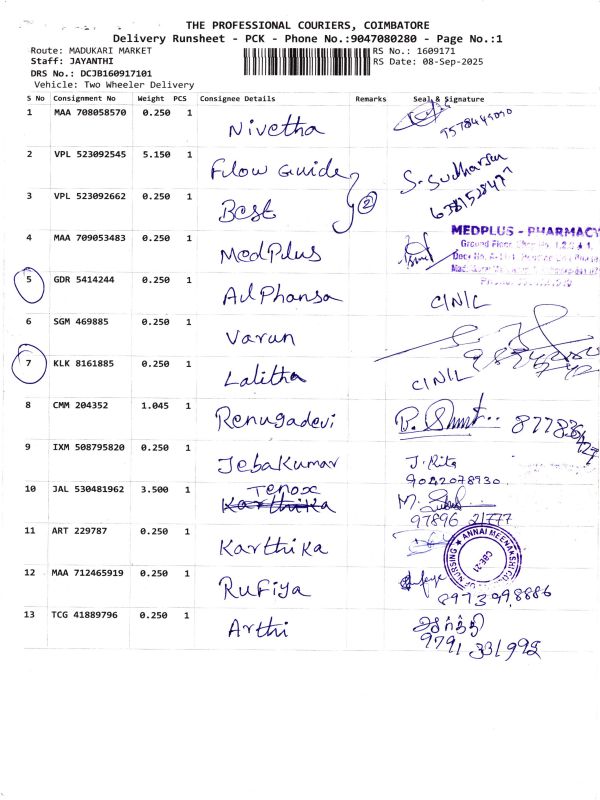 THE PROFESSIONAL COURIERS, COIMBATORE
Delivery Runsheet - PCK - Phone No.:9047080280 - Page No.:1
Route: MADUKARI MARKET RS No.: 1609171
Staff: JAYANTHI RS Date: 08-Sep-2025
DRS No.: DCJB160917101
Vehicle: Two Wheeler Delivery
S No Consignment No Weight PCS Consignee Details Remarks Seal & Signature
1 MAA 708058570 0.250 1 Nivetha
2 VPL 523092545 5.150 1 Flow Guide S. Sudharsan
3 VPL 523092662 0.250 1 Best 2
4 MAA 709053483 0.250 1 MedPlus MEDPLUS - PHARMACY
Ground Floor
5 GDR 5414244 0.250 1 AlPhansa C/N/L
6 SGM 469885 0.250 1 Varun
7 KLK 8161885 0.250 1 Lalitha C/N/L
8 CMM 204352 1.045 1 Renugadevi
9 IXM 508795820 0.250 1 JebaKumar J. Rita
9042078930
10 JAL 530481962 3.500 1 Tenox
Karthika
97896 21777
11 ART 229787 0.250 1 Karthika ANNAI MEENAKSHI OF NURSING CBE-21
12 MAA 712465919 0.250 1 Rufiya
8973998886
13 TCG 41889796 0.250 1 Arthi ஆர்த்தி
9791 331992